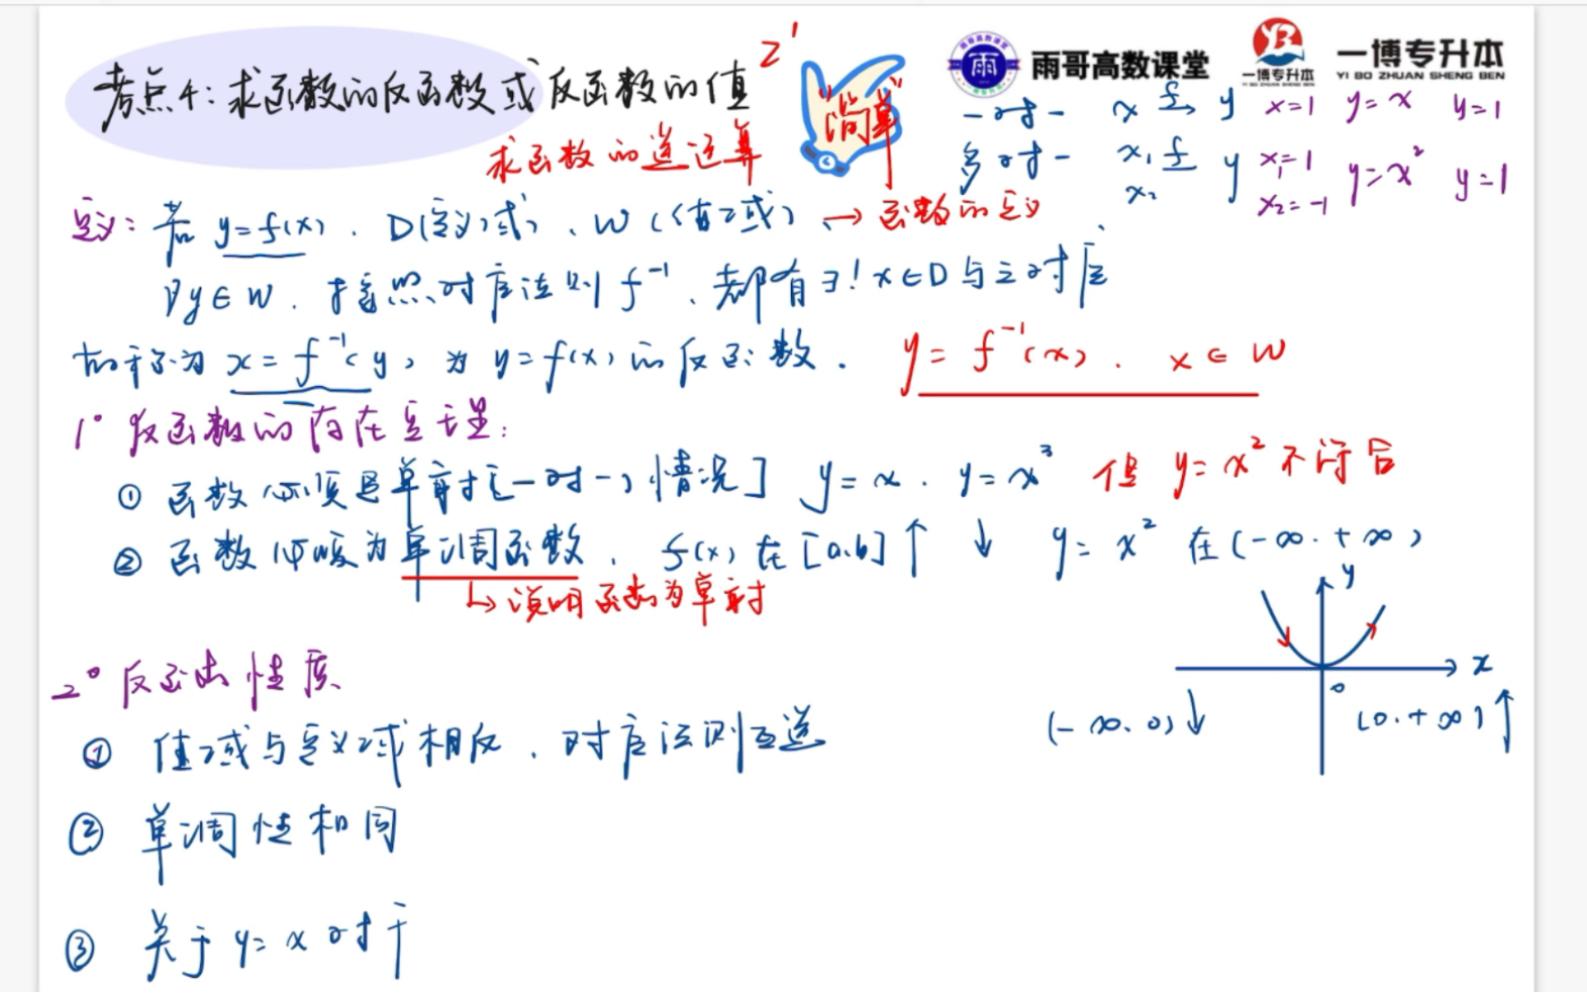 考点4:求函数的反函数或反函数的值 2'
"简单"
雨哥高数课堂
一博专升本
YI BO ZHUAN SHENG BEN
一博专升本
求函数的逆运算
一对一 x f→ y x=1 y=x y=1
多对一 x₁ x₂ f→ y x₁=1 x₂=-1 y=x² y=1
定义:若 y=f(x), D(定义域), W(值域) → 函数的定义
∀y∈W, 按照对应法则 f⁻¹, 都有∃! x∈D与之对应
故称为 x=f⁻¹(y) 为 y=f(x) 的反函数. y=f⁻¹(x). x∈W
1° 反函数的存在定理:
① 函数必须是单射[一对一情况] y=x. y=x³ 但 y=x² 不符合
② 函数必须为单调函数, f(x)在[a.b]↑ ↓ y=x² 在(-∞.+∞)
↳说明函数为单射
y
x
0
(-∞.0)↓ (0.+∞)↑
2° 反函数性质
① 值域与定义域相反, 对应法则互逆
② 单调性相同
③ 关于 y=x 对于